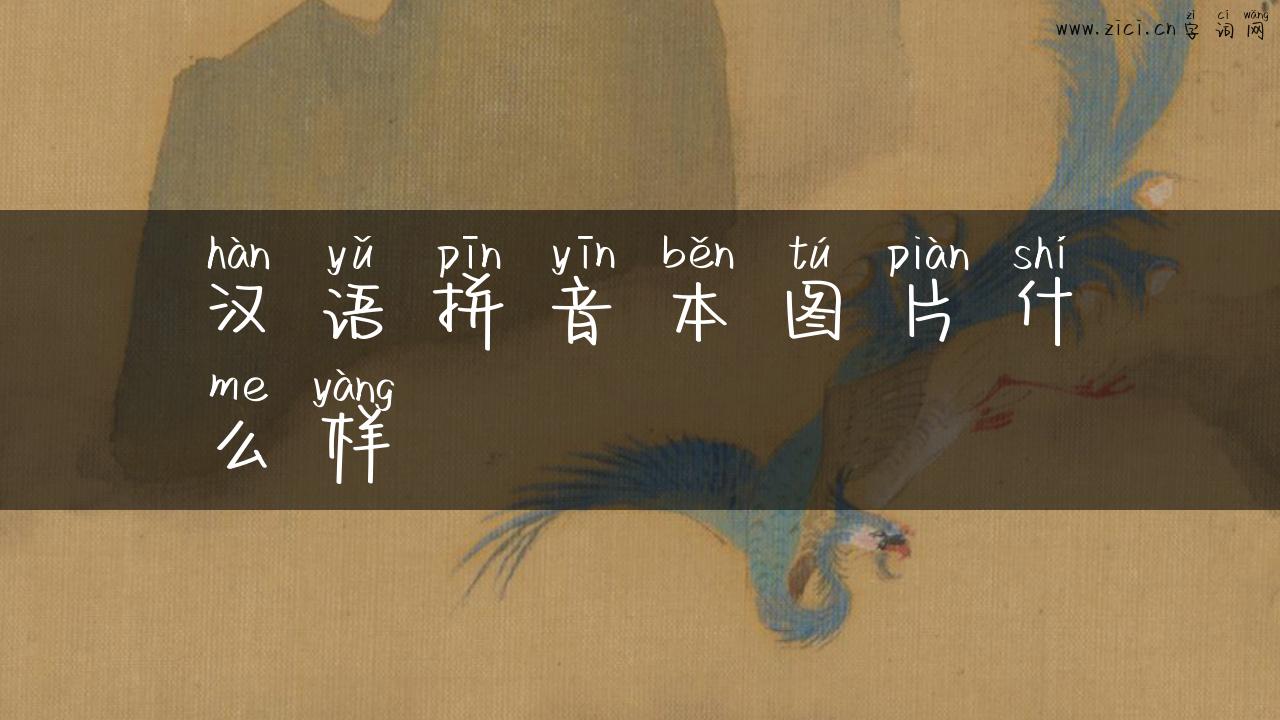 zì cí wǎng
www.zici.cn 字 词 网
hàn yǔ pīn yīn běn tú piàn shí
汉 语 拼 音 本 图 片 什
me yàng
么 样